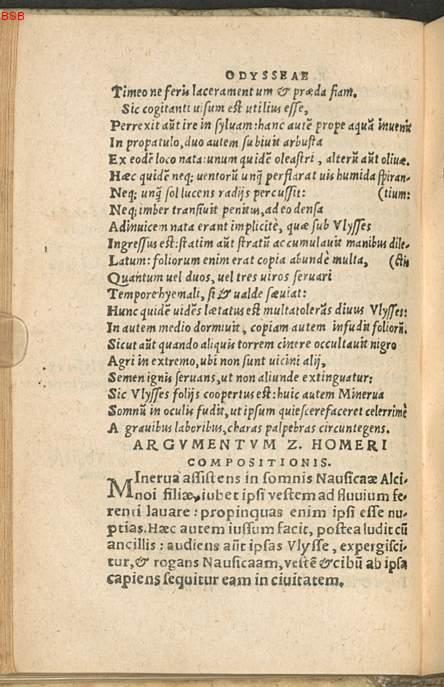 BSB
ODYSSEAE
Timeo ne feris laceramentum & præda fiam.
Sic cogitanti uisum est utilius esse,
Perrexit aūt ire in syluam: hanc autē prope aquā inuenit
In propatulo, duo autem subiuit arbusta
Ex eodē loco nata: unum quidē oleastri, alterū aūt oliuæ.
Hæc quidē neq; uentorū unq̄ perflarat uis humida spiran-
Neq; unq̄ sol lucens radijs percussit: (tium:
Neq; imber transiuit penitus, adeo densa
Adinuicem nata erant implicitè, quæ sub Vlysses
Ingressus est: statim aūt stratū accumulauit manibus dile-
Latum: foliorum enim erat copia abundè multa, (ctis
Quantum uel duos, uel tres uiros seruari
Tempore hyemali, si & ualde sæuiat:
Hunc quidē uidēs lætatus est multa tolerās diuus Vlysses:
In autem medio dormiuit, copiam autem infudit foliorū.
Sicut aūt quando aliquis torrem cinere occultauit nigro
Agri in extremo, ubi non sunt uicini alij,
Semen ignis seruans, ut non aliunde extinguatur:
Sic Vlysses folijs coopertus est: huic autem Minerua
Somnū in oculis fudit, ut ipsum quiescere faceret celerrimè
A grauibus laboribus, charas palpebras circuntegens.
ARGVMENTVM Z. HOMERI
COMPOSITIONIS.
MInerua assistens in somnis Nausicaæ Alci-
noi filiæ, iubet ipsi vestem ad fluuium fe-
renti lauare: propinquas enim ipsi esse nu-
ptias. Hæc autem iussum facit, postea ludit cū
ancillis: audiens aūt ipsas Vlysse, expergisci-
tur, & rogans Nausicaam, vestē & cibū ab ipsa
capiens sequitur eam in ciuitatem.